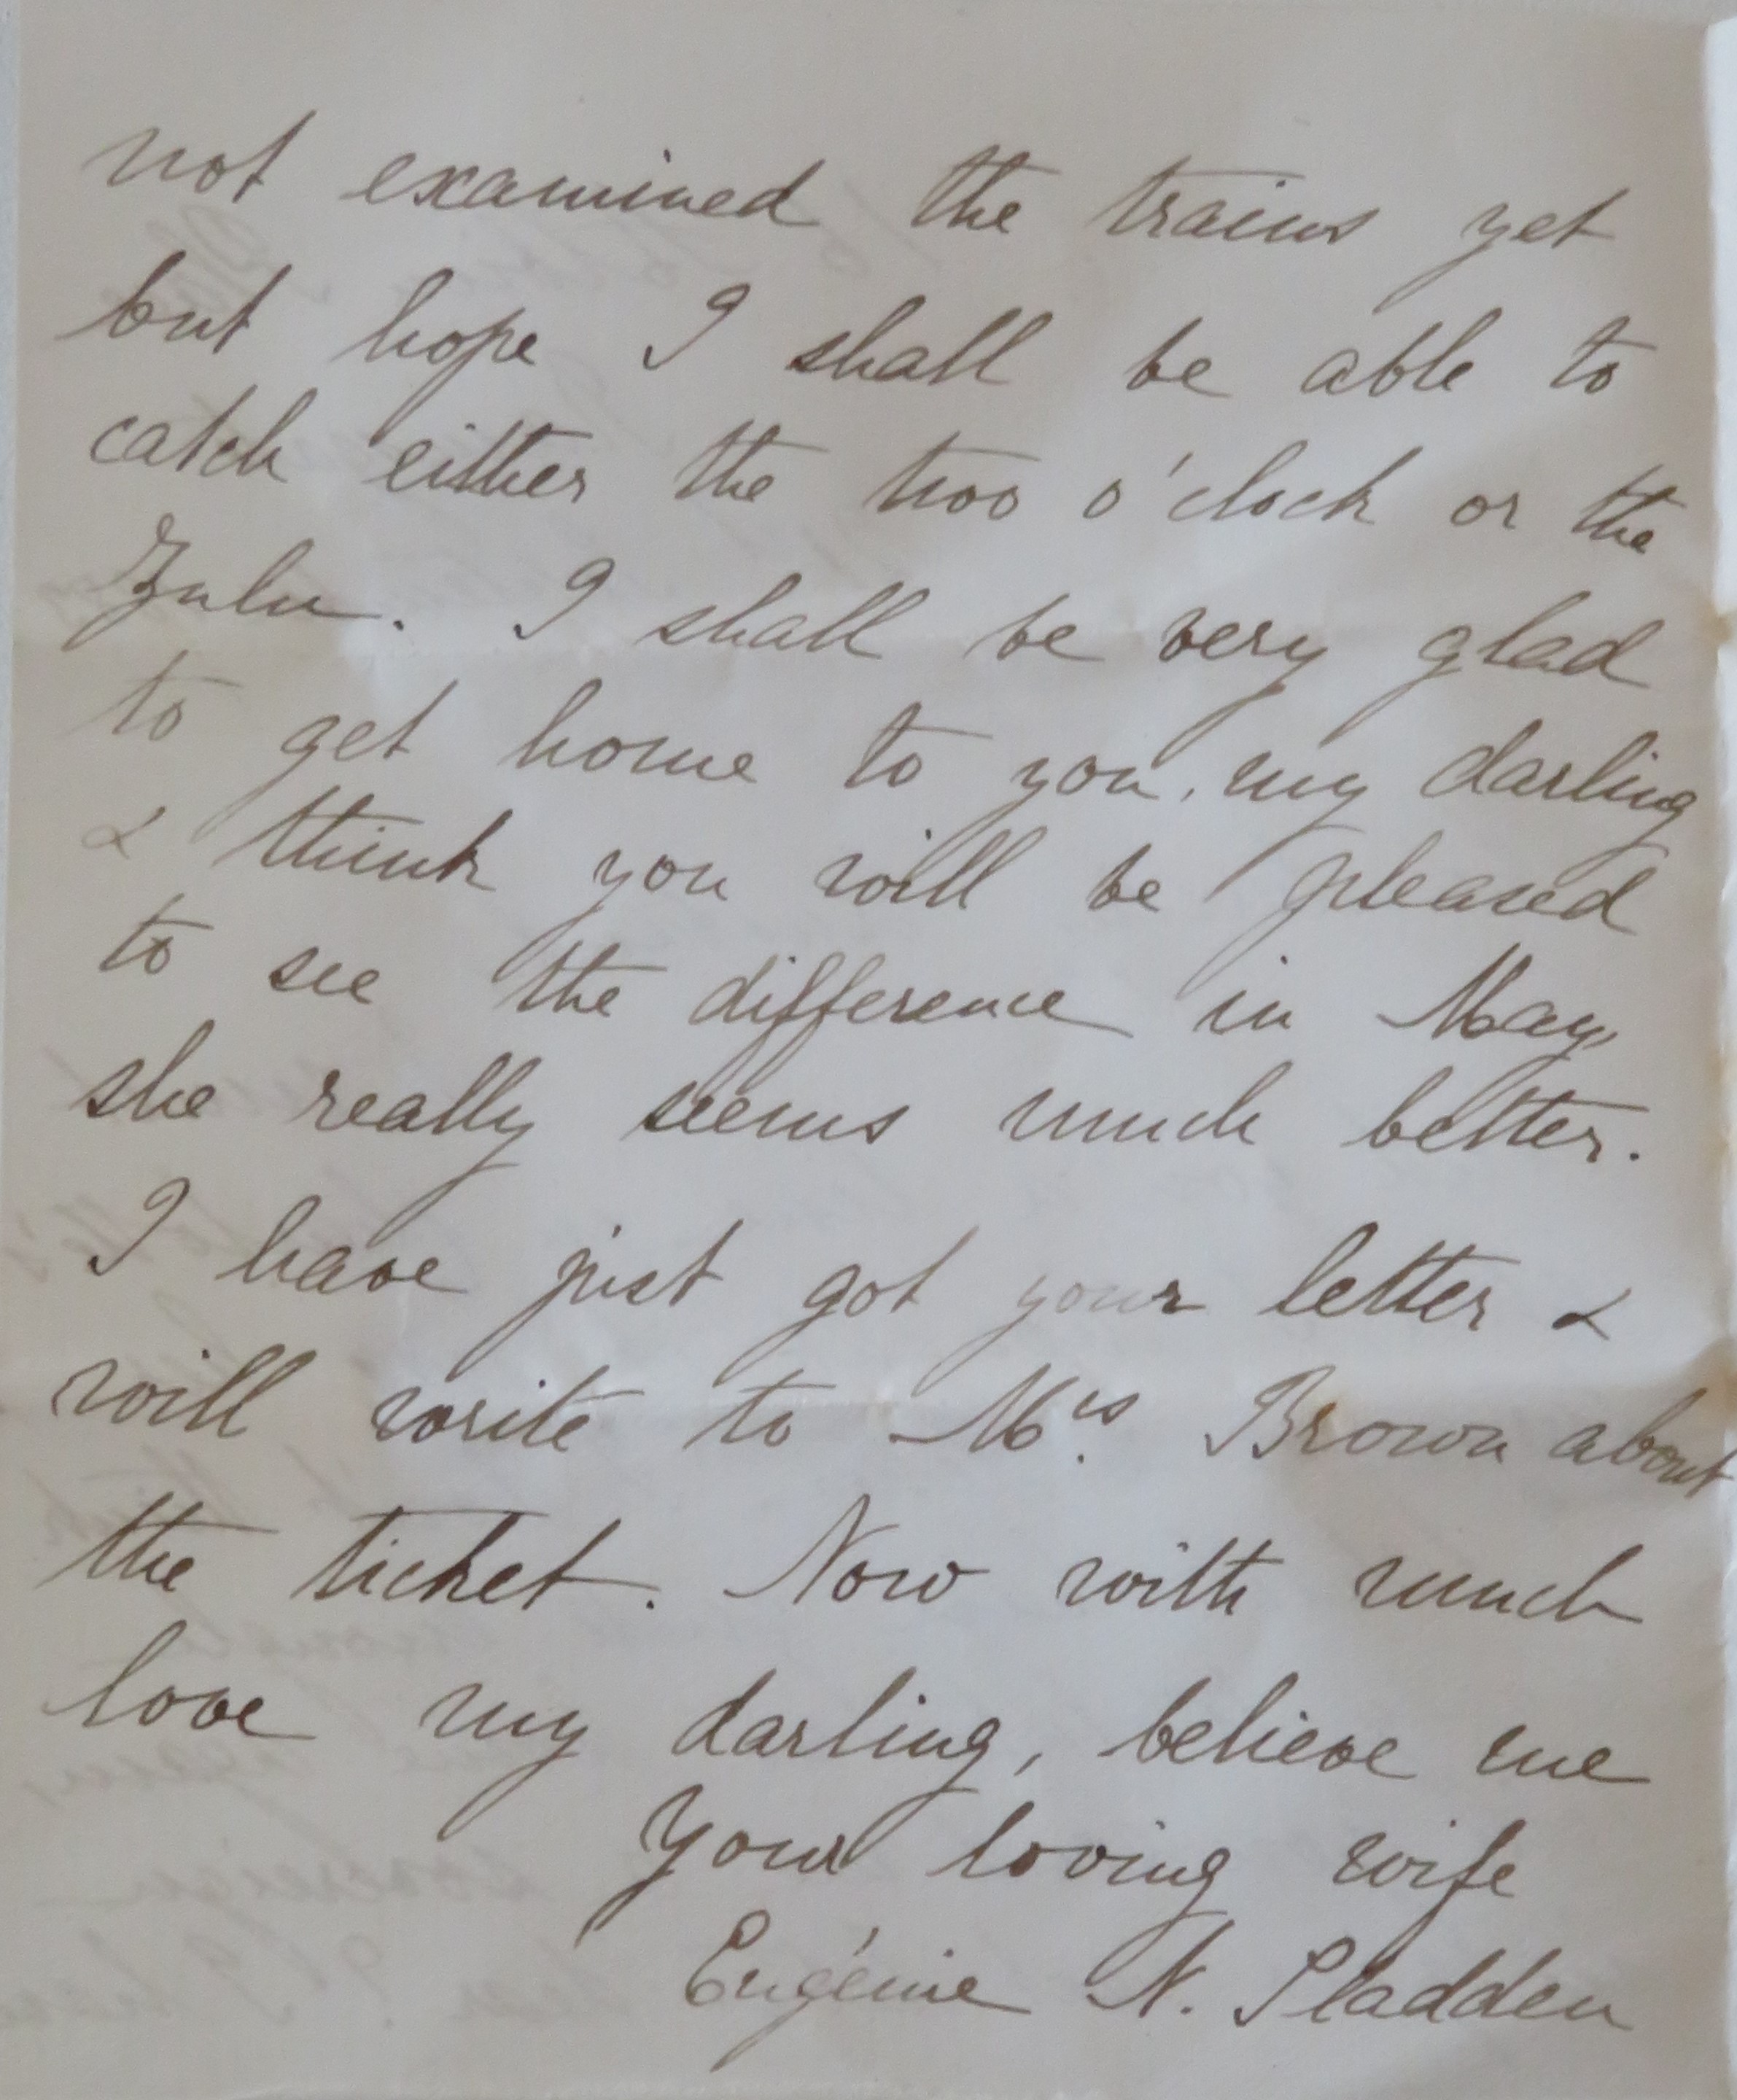 not examined the trains yet
but hope I shall be able to
catch either the two o'clock or the
Zulu. I shall be very glad
to get home to you, my darling
& think you will be pleased
to see the difference in May,
she really seems much better.
I have just got your letter &
will write to Mrs. Brown about
the ticket. Now with much
love my darling, believe me
Your loving wife
Eugénie N. Sladden